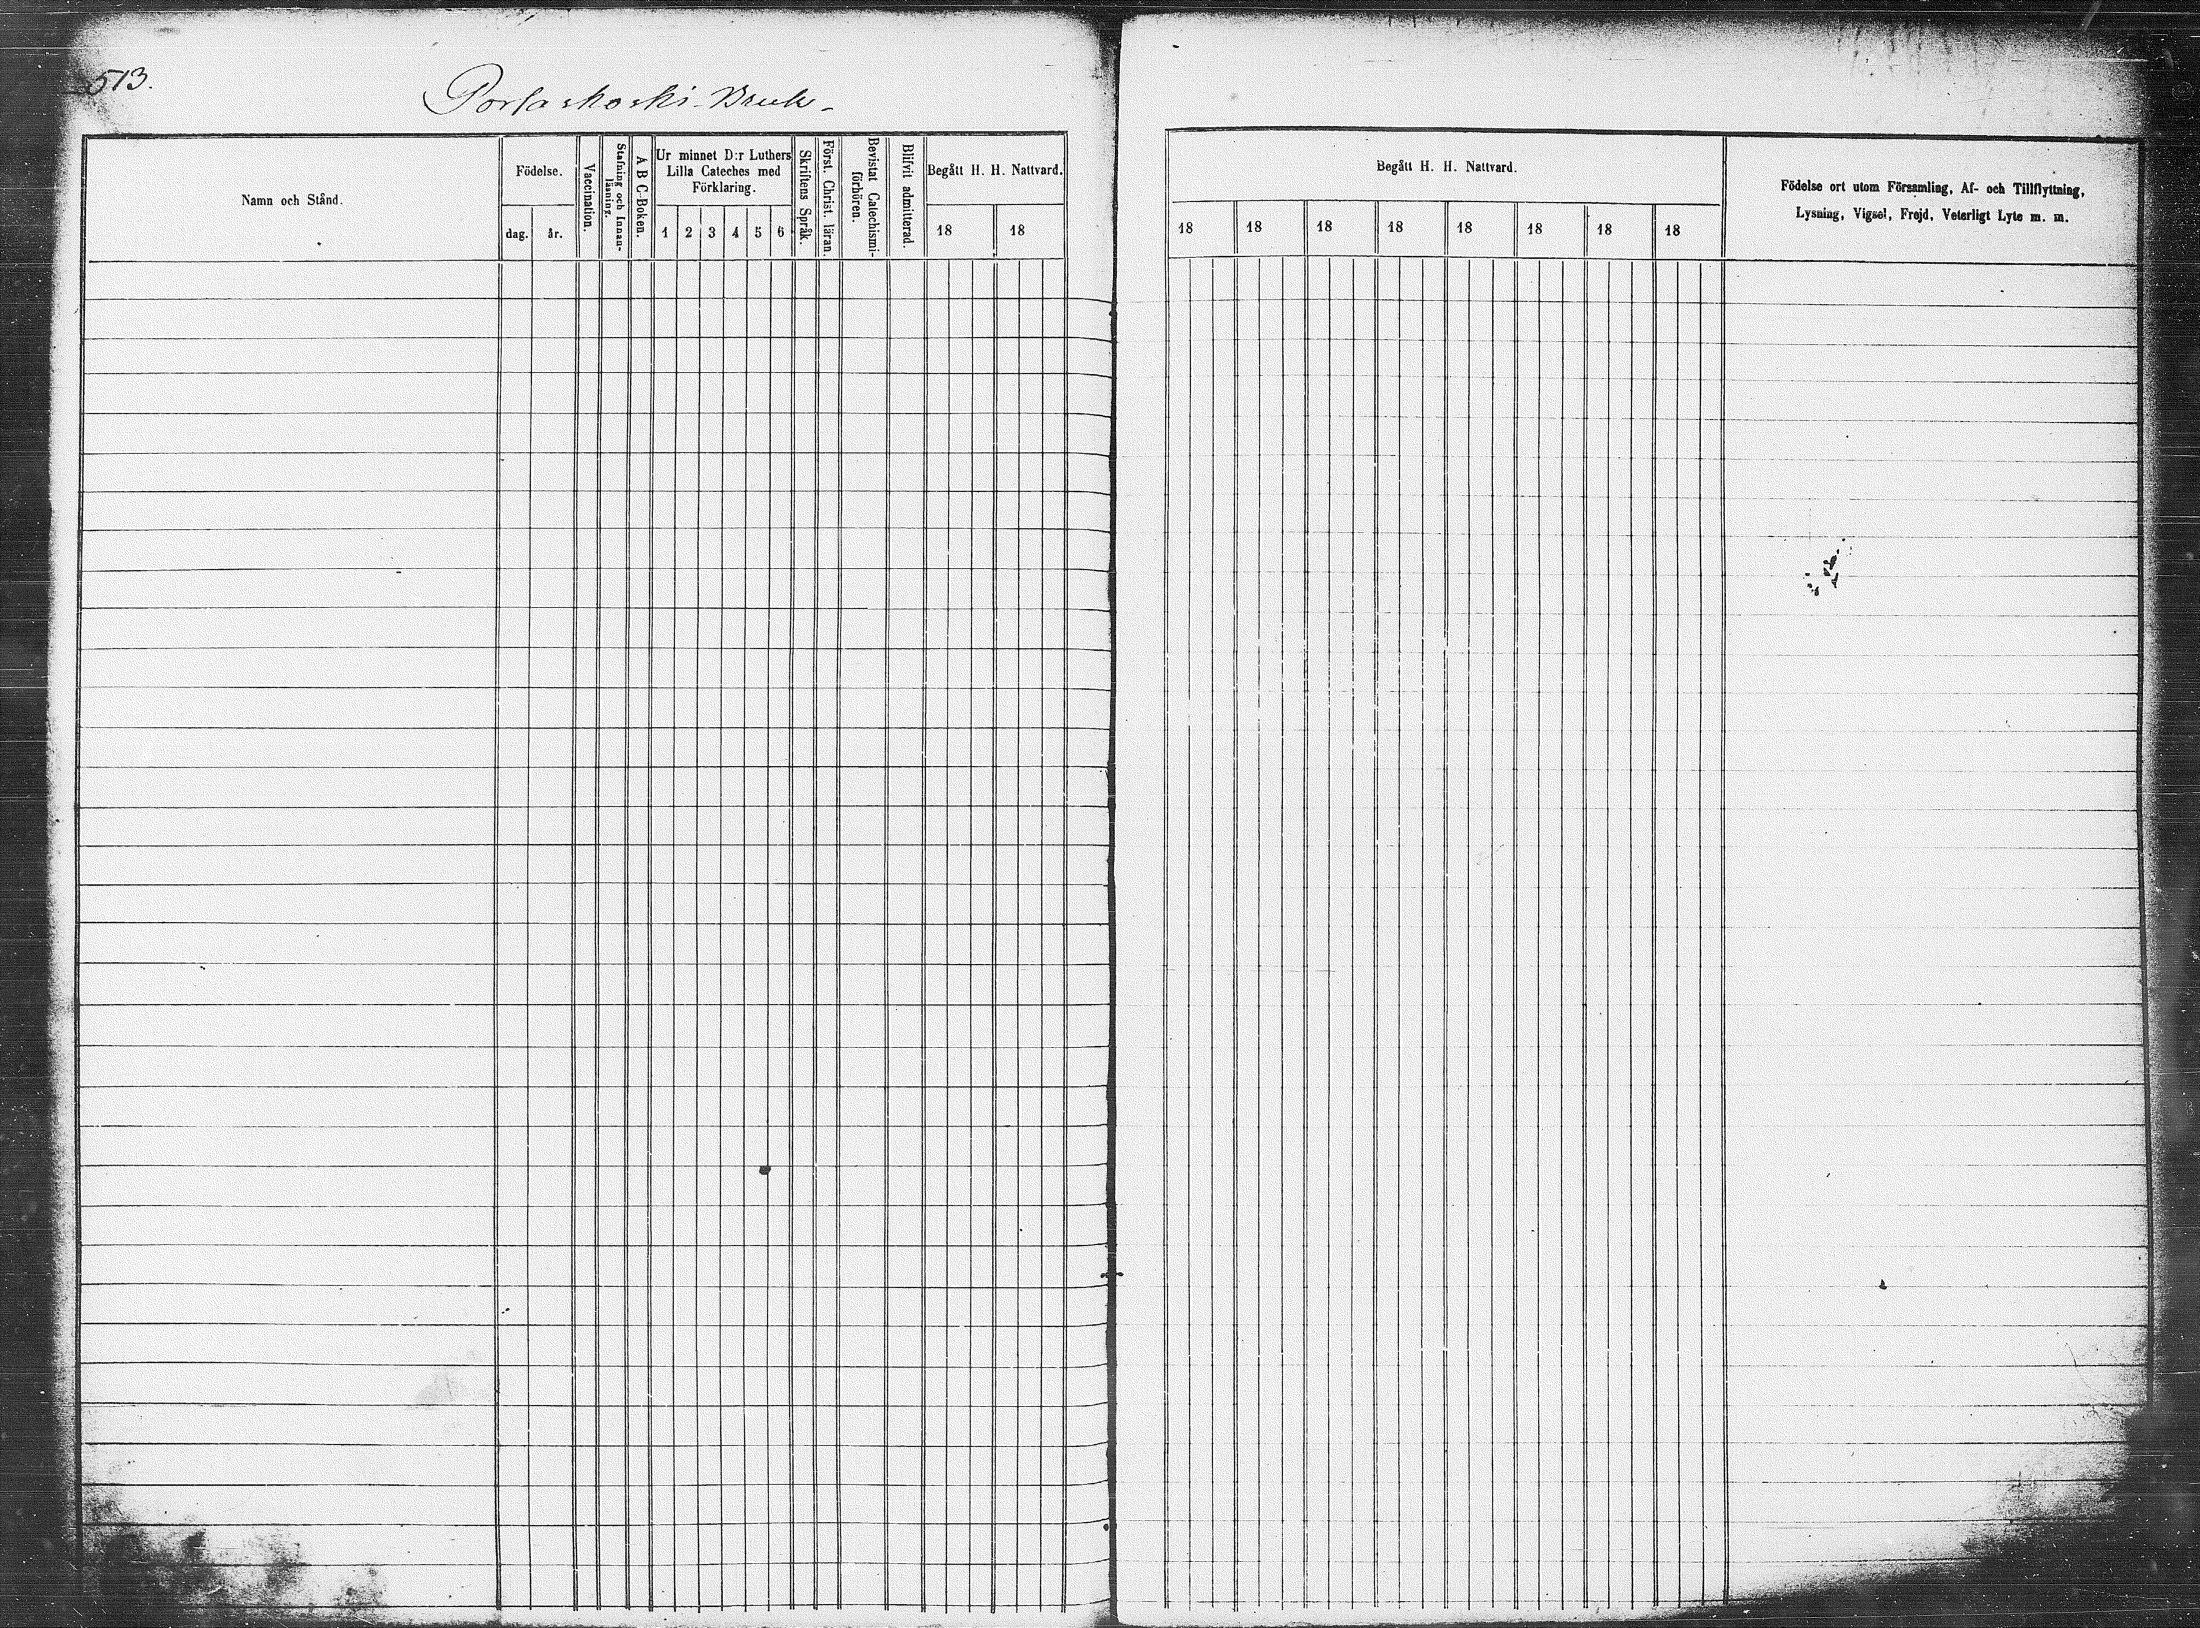 513.
Portaskoski Bruk
Namn och Stånd.
Födelse.
dag. år.
Vaccination.
Stafning och Innan-
läsning.
A B C-Boken.
Ur minnet D:r Luthers
Lilla Cateches med
Förklaring.
1 2 3 4 5 6
Skriftens Språk.
Först. Christ. läran.
Bevistat Catechismi-
förhören.
Blifvit admitterad.
Begått H. H. Nattvard.
18 18
Begått H. H. Nattvard.
18 18 18 18 18 18 18 18
Födelse ort utom Församling, Af- och Tillflyttning,
Lysning, Vigsel, Frejd, Veterligt Lyte m. m.